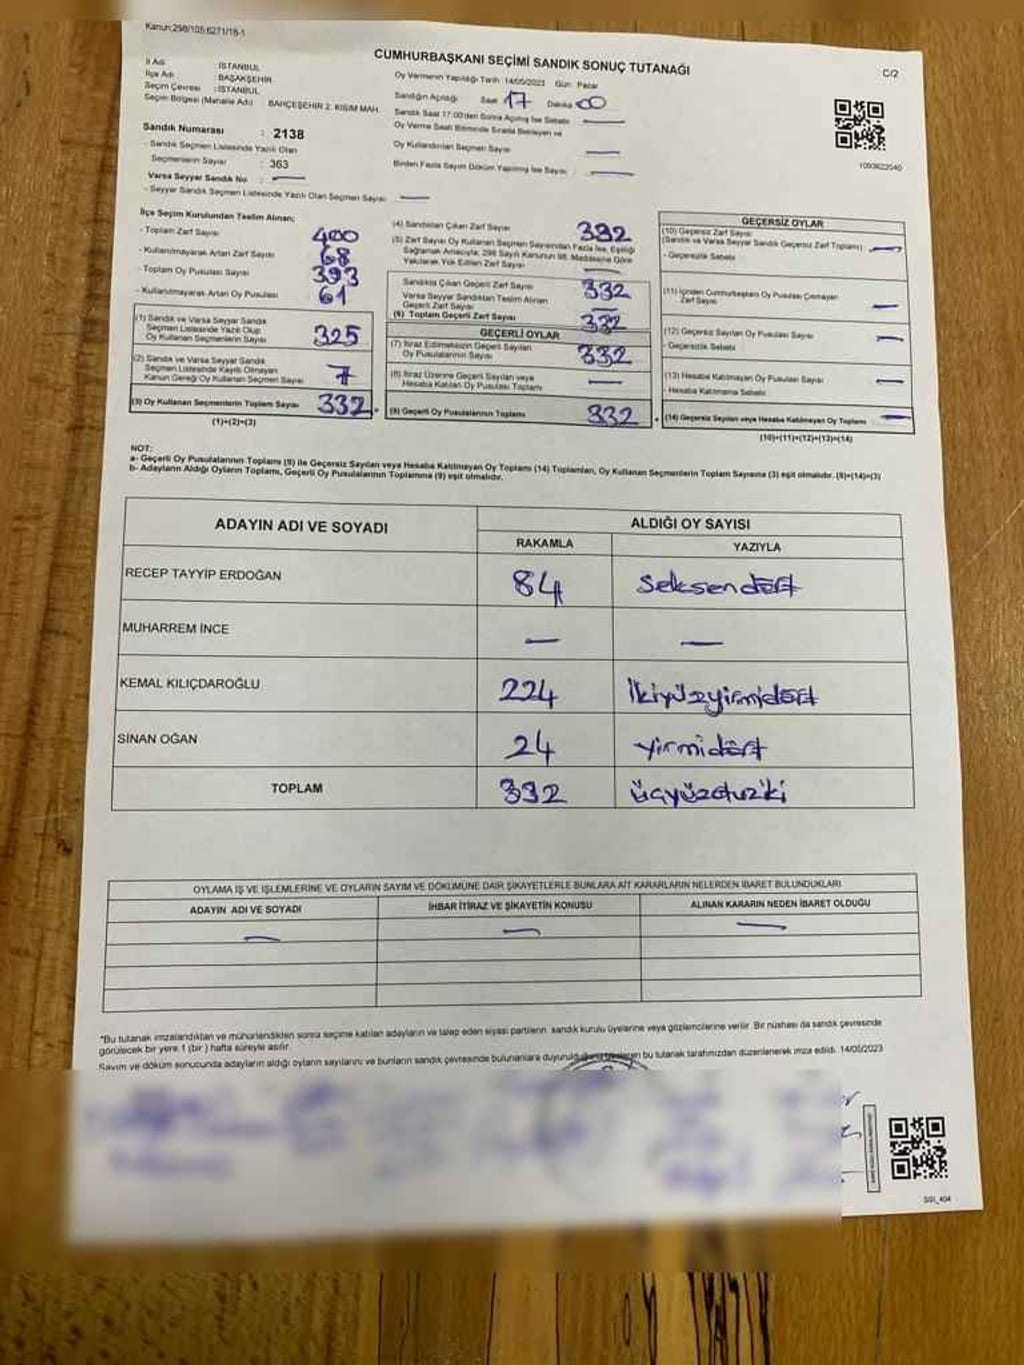 Kanun:298/105;6271/18-1
CUMHURBAŞKANI SEÇİMİ SANDIK SONUÇ TUTANAĞI
C/2
İl Adı : İSTANBUL
İlçe Adı : BAŞAKŞEHİR
Seçim Çevresi : İSTANBUL
Seçim Bölgesi (Mahalle Adı) BAHÇEŞEHİR 2. KISIM MAH.
Sandık Numarası : 2138
- Sandık Seçmen Listesinde Yazılı Olan
Seçmenlerin Sayısı : 363
Varsa Seyyar Sandık No : —
- Seyyar Sandık Seçmen Listesinde Yazılı Olan Seçmen Sayısı : —
Oy Vermenin Yapıldığı Tarih 14/05/2023 Gün Pazar
Sandığın Açıldığı Saat 17 Dakika 00
Sandık Saat 17:00'den Sonra Açılmış İse Sebebi : —
Oy Verme Saati Bitiminde Sırada Bekleyen ve
Oy Kullandırılan Seçmen Sayısı —
Birden Fazla Sayım Döküm Yapılmış İse Sayısı : —
1093622040
İlçe Seçim Kurulundan Teslim Alınan;
- Toplam Zarf Sayısı 400
- Kullanılmayarak Artan Zarf Sayısı 68
- Toplam Oy Pusulası Sayısı 393
- Kullanılmayarak Artan Oy Pusulası 61
(1) Sandık ve Varsa Seyyar Sandık
Seçmen Listesinde Yazılı Olup
Oy Kullanan Seçmenlerin Sayısı 325
(2) Sandık ve Varsa Seyyar Sandık
Seçmen Listesinde Kayıtlı Olmayan
Kanun Gereği Oy Kullanan Seçmen Sayısı 7
(3) Oy Kullanan Seçmenlerin Toplam Sayısı 332
(1)+(2)=(3)
(4) Sandıktan Çıkan Zarf Sayısı 332
(5) Zarf Sayısı Oy Kullanan Seçmen Sayısından Fazla İse, Eşitliği
Sağlamak Amacıyla, 298 Sayılı Kanunun 98. Maddesine Göre
Yakılarak Yok Edilen Zarf Sayısı —
Sandıkta Çıkan Geçerli Zarf Sayısı 332
Varsa Seyyar Sandıktan Teslim Alınan
Geçerli Zarf Sayısı —
(6) Toplam Geçerli Zarf Sayısı 332
GEÇERLİ OYLAR
(7) İtiraz Edilmeksizin Geçerli Sayılan
Oy Pusulalarının Sayısı 332
(8) İtiraz Üzerine Geçerli Sayılan veya
Hesaba Katılan Oy Pusulası Toplamı —
(9) Geçerli Oy Pusulalarının Toplamı 332
GEÇERSİZ OYLAR
(10) Geçersiz Zarf Sayısı
(Sandık ve Varsa Seyyar Sandık Geçersiz Zarf Toplamı) —
- Geçersizlik Sebebi
(11) İçinden Cumhurbaşkanı Oy Pusulası Çıkmayan
Zarf Sayısı —
(12) Geçersiz Sayılan Oy Pusulası Sayısı —
- Geçersizlik Sebebi
(13) Hesaba Katılmayan Oy Pusulası Sayısı —
- Hesaba Katılmama Sebebi
(14) Geçersiz Sayılan veya Hesaba Katılmayan Oy Toplamı —
(10)+(11)+(12)+(13)=(14)
NOT:
a- Geçerli Oy Pusulalarının Toplamı (9) ile Geçersiz Sayılan veya Hesaba Katılmayan Oy Toplamı (14) Toplamları, Oy Kullanan Seçmenlerin Toplam Sayısına (3) eşit olmalıdır. (9)+(14)=(3)
b- Adayların Aldığı Oyların Toplamı, Geçerli Oy Pusulalarının Toplamına (9) eşit olmalıdır.
ADAYIN ADI VE SOYADI
ALDIĞI OY SAYISI
RAKAMLA YAZIYLA
RECEP TAYYİP ERDOĞAN 84 Seksendört
MUHARREM İNCE — —
KEMAL KILIÇDAROĞLU 224 İkiyüzyirmidört
SİNAN OĞAN 24 yirmidört
TOPLAM 332 üçyüzotuziki
OYLAMA İŞ VE İŞLEMLERİNE VE OYLARIN SAYIM VE DÖKÜMÜNE DAİR ŞİKAYETLERLE BUNLARA AİT KARARLARIN NELERDEN İBARET BULUNDUKLARI
ADAYIN ADI VE SOYADI İHBAR İTİRAZ VE ŞİKAYETİN KONUSU ALINAN KARARIN NEDEN İBARET OLDUĞU
— — —
*Bu tutanak imzalandıktan ve mühürlendikten sonra seçime katılan adayların ve talep eden siyasi partilerin sandık kurulu üyelerine veya gözlemcilerine verilir. Bir nüshası da sandık çevresinde
görülecek bir yere 1 (bir) hafta süreyle asılır.
Sayım ve döküm sonucunda adayların aldığı oyların sayılarını ve bunların sandık çevresinde bulunanlara duyurulduğunu bu tutanak tarafımızdan düzenlenerek imza edildi. 14/05/2023
SGI_404